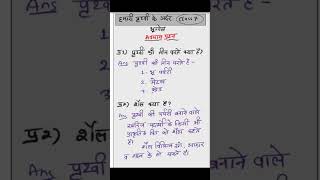 हमारी पृथ्वी के अंदर class 7
भूगोल
अभ्यास प्रश्न
प्र1) पृथ्वी की तीन परतें क्या हैं?
Ans पृथ्वी की तीन परतें हैं -
1. भू पर्पटी
2. मेंटल
3. क्रोड
प्र2) शैल क्या है?
Ans पृथ्वी की पर्पटी बनाने वाले
खनिज पदार्थों के किसी भी
प्राकृतिक पिंड को शैल कहते
हैं।
शैल विभिन्न रंग, आकार
व गठन के हो सकते हैं।
प्र2) शैल
Ans पृथ्वी
बनाने वाले